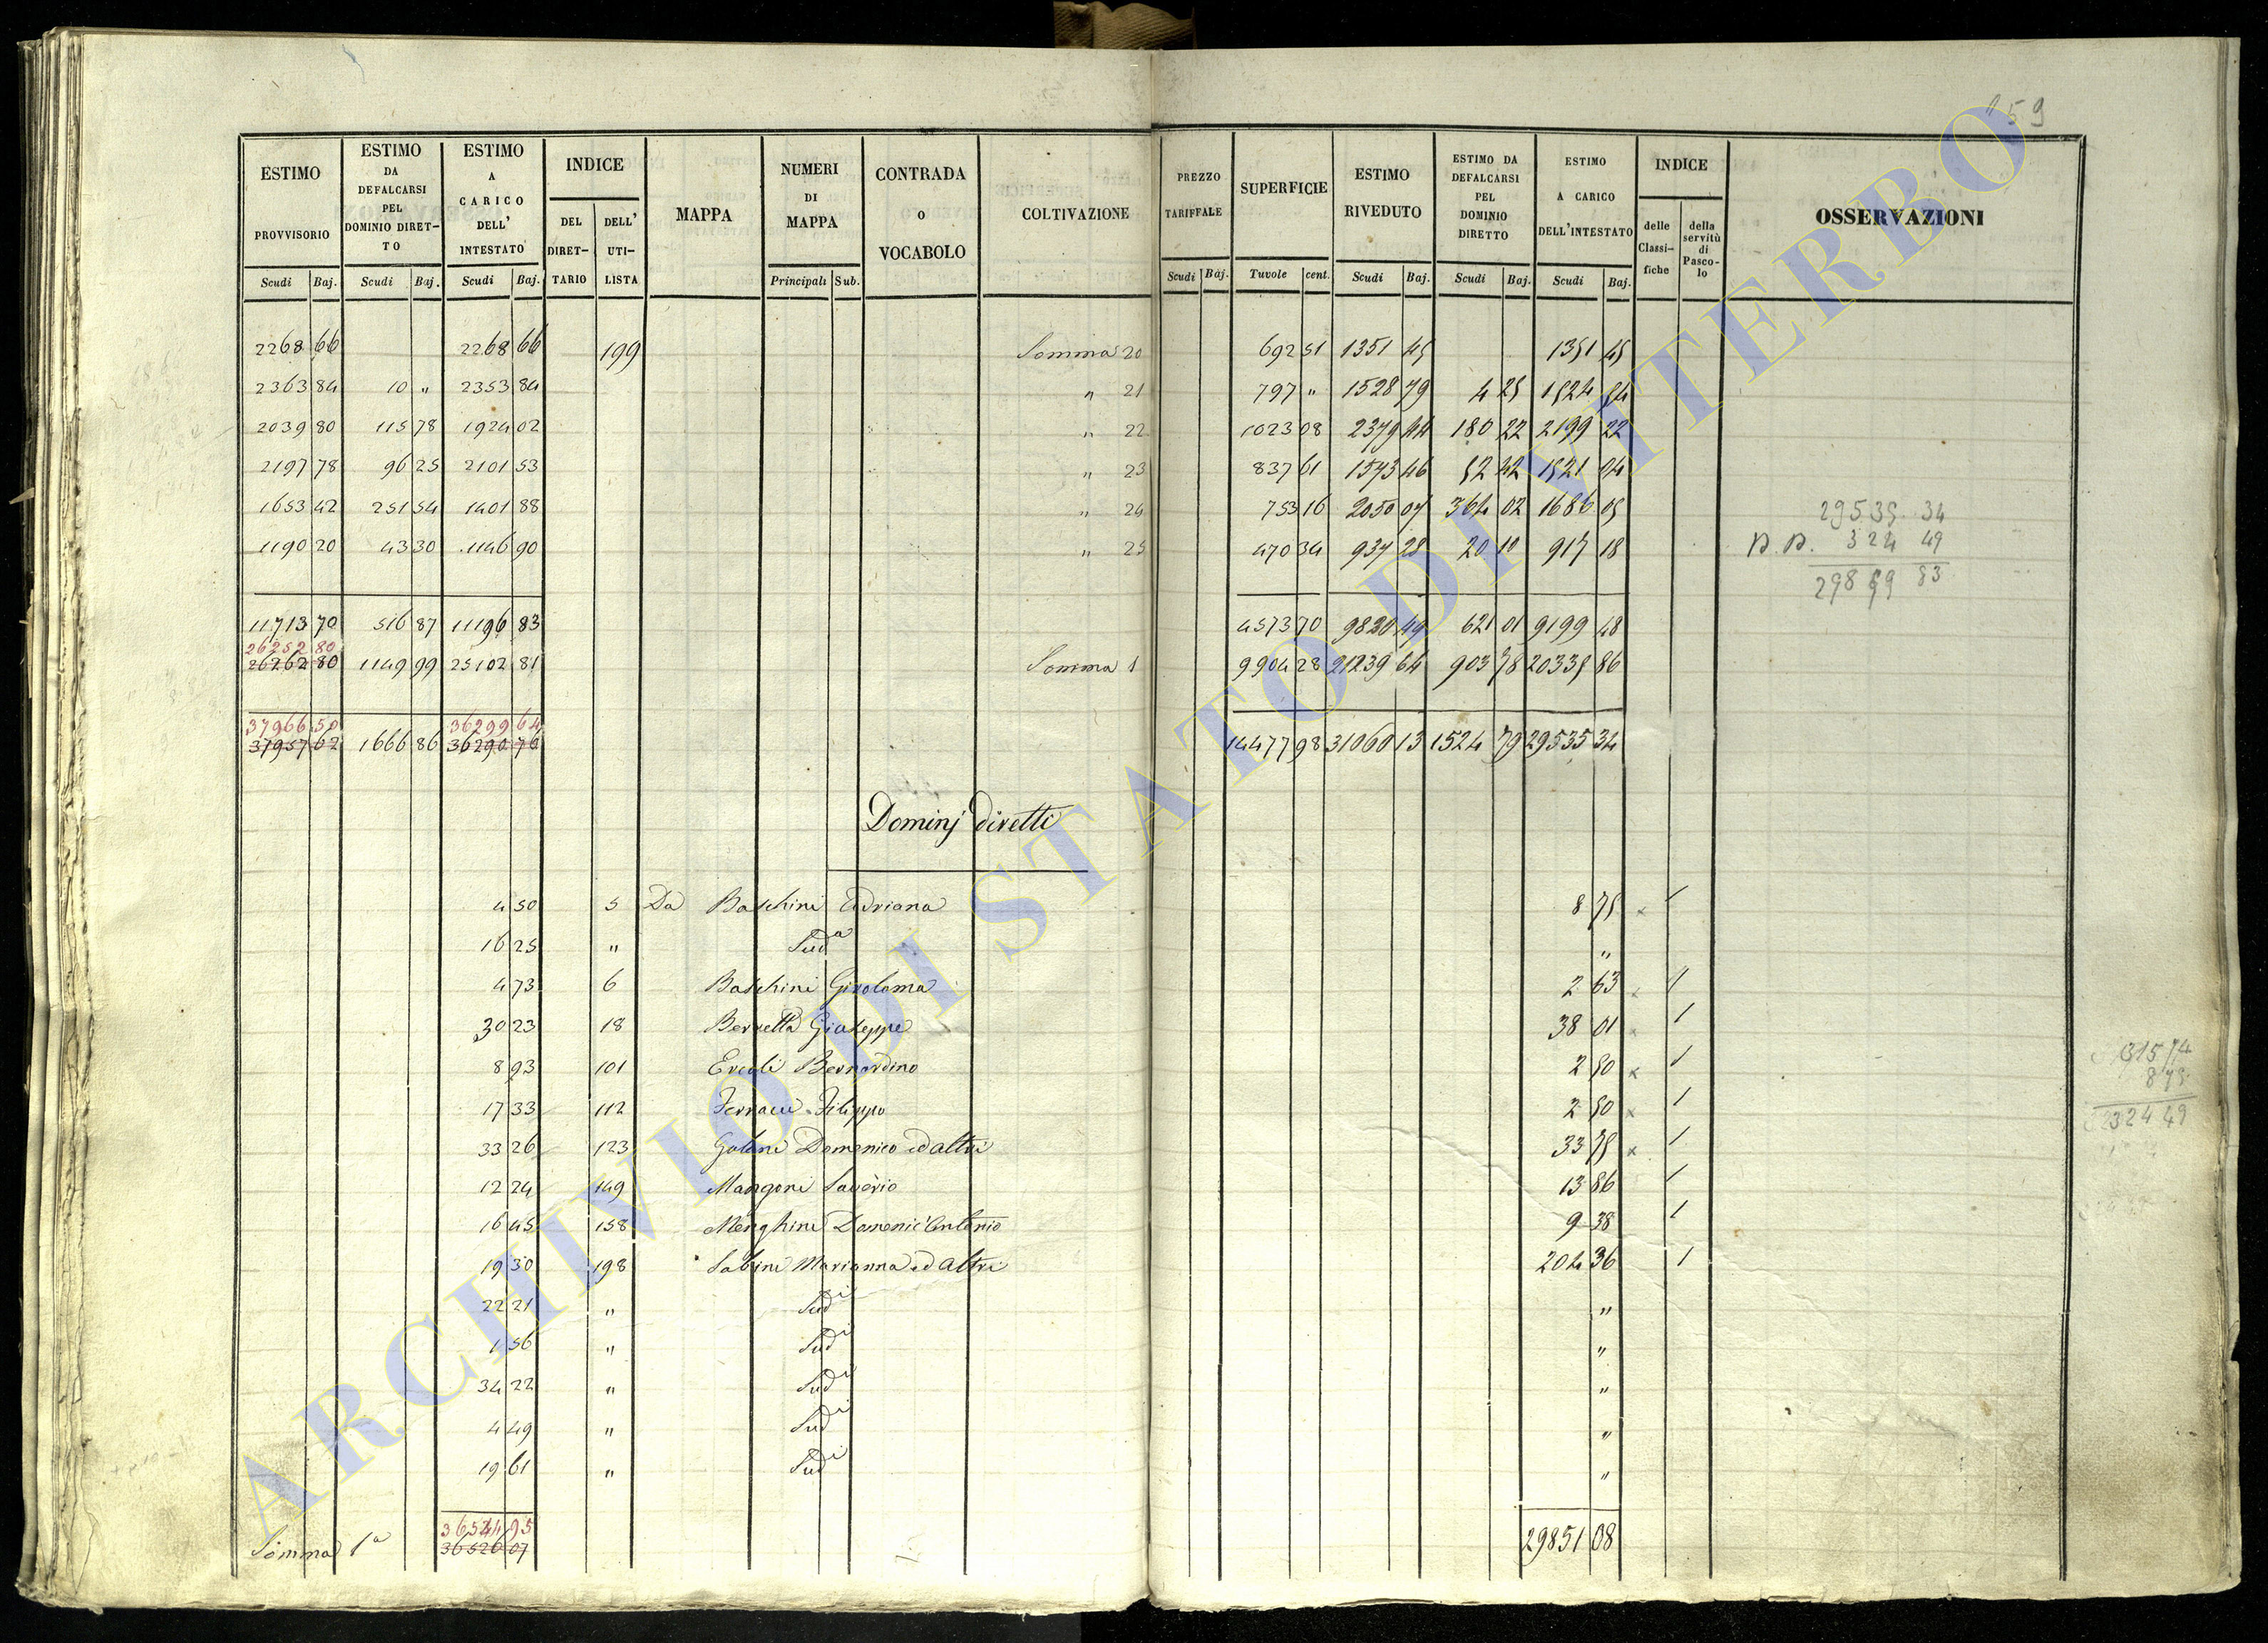 159
ESTIMO PROVVISORIO Scudi Baj.
ESTIMO DA DEFALCARSI PEL DOMINIO DIRETTO Scudi Baj.
ESTIMO A CARICO DELL' INTESTATO Scudi Baj.
INDICE DEL DIRETTARIO DELL' UTILISTA
MAPPA
NUMERI DI MAPPA Principali Sub.
CONTRADA O VOCABOLO
COLTIVAZIONE
PREZZO TARIFFALE Scudi Baj.
SUPERFICIE Tavole cent.
ESTIMO RIVEDUTO Scudi Baj.
ESTIMO DA DEFALCARSI PEL DOMINIO DIRETTO Scudi Baj.
ESTIMO A CARICO DELL'INTESTATO Scudi Baj.
INDICE delle Classifiche della servitù di Pascolo
OSSERVAZIONI
2268 66 2268 66 199 Somma 20 692 51 1351 45 1351 45
2363 84 10 " 2353 84 " 21 797 " 1528 79 4 25 1524 54
2039 80 115 78 1924 02 " 22 1023 08 2379 44 180 22 2199 22
2197 78 96 25 2101 53 " 23 837 61 1573 46 52 42 1521 04
1653 42 251 54 1401 88 " 24 753 16 2050 07 364 02 1686 05
1190 20 43 30 1146 90 " 25 470 34 937 28 20 10 917 18
29535 34
D. D. 324 49
29859 83
11713 70 516 87 11196 83 4573 70 9820 49 621 01 9199 48
26252 80
26262 80 1149 99 25102 81 Somma 1 9904 28 21239 64 903 78 20335 86
37966 50 36299 64
37957 62 1666 86 36290 76 14477 98 31060 13 1524 79 29535 34
Dominj diretti
4 50 5 Da Baschini Adriana 8 75 x 1
16 25 " Sud.a "
4 73 6 Baschini Girolama 2 63 x 1
30 23 18 Berretta Giuseppe 38 01 x 1
8 93 101 Ercoli Bernardino 2 50 x 1
17 33 112 Ferracci Filippo 2 50 x 1
33 26 123 Galeni Domenico ed altri 33 75 x 1
12 24 149 Mangoni Saverio 13 86 1
16 45 158 Menghini Domenic'Antonio 9 38 1
19 30 198 Sabini Marianna ed altri 204 36 1
22 21 " Sud.i "
1 56 " Sud.i "
34 22 " Sud.i "
4 49 " Sud.i "
19 61 " Sud.i "
315 74
8 75
324 49
36534 95
Somma 1a 36526 07 29851 08
ARCHIVIO DI STATO DI VITERBO